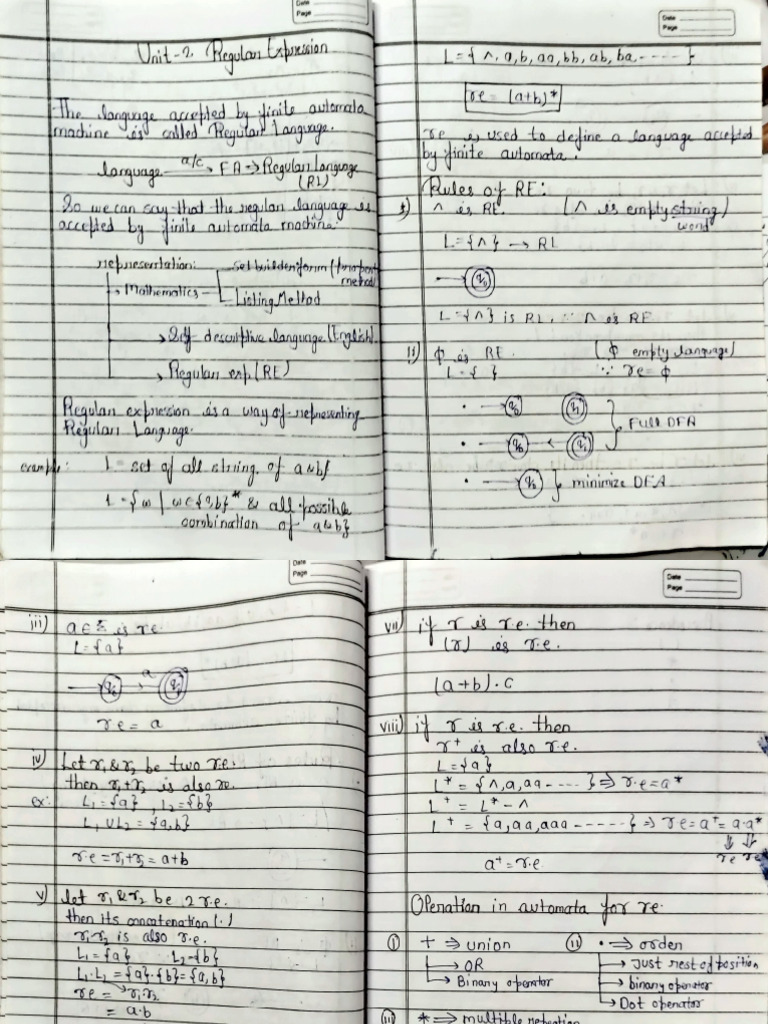 Date
Page
Unit-2. Regular Expression
The language accepted by finite automata
machine is called Regular Language.
language a/c FA → Regular Language
(RL)
So we can say that the regular language is
accepted by finite automata machine.
representation:
Mathematics
set builder form (
method
Listing Method
descriptive language (English)
Regular exp. (RE)
Regular expression is a way of representing
Regular Language.
example: L = set of all string of a & b
L = {ω | ω∈{a,b}* & all possible
combination of a & b}
Date
Page
L = {^, a, b, aa, bb, ab, ba ----- }
re = (a+b)*
re is used to define a language accepted
by finite automata.
Rules of RE:
i) ^ is RE. (^ is empty string/
word
L = {^} → RL
q0
L = {^} is RL ∵ ^ is RE
ii) ϕ is RE. (ϕ empty language)
L = { } ∵ re = ϕ
q0 q1
q0 q1
} Full DFA
q0 } minimize DFA
Date
Page
iii) a∈Σ is re
L = {a}
q0 a
re = a
iv) Let r1 & r2 be two r.e.
then r1+r2 is also re.
ex: L1 = {a}, L2 = {b}
L1 ∪ L2 = {a,b}
r.e = r1+r2 = a+b
v) let r1 & r2 be 2 r.e.
then its concatenation (.)
r1.r2 is also r.e.
L1 = {a} L2 = {b}
L1.L2 = {a}.{b} = {a,b}
re = r1.r2
= a.b
Date
Page
vii) if r is r.e. then
(r) is r.e.
(a+b).c
viii) if r is r.e. then
r+ is also r.e.
L = {a}
L* = {^, a, aa ----- } ⇒ r.e = a*
L+ = L* - ^
L+ = {a, aa, aaa ------ } ⇒ re = a+ = a.a*
re re
a+ = r.e
Operation in automata for re.
i) + ⇒ union
OR
Binary operator
ii) • ⇒ order
Just rest of position
binary operator
Dot operator
iii) * ⇒ multiple